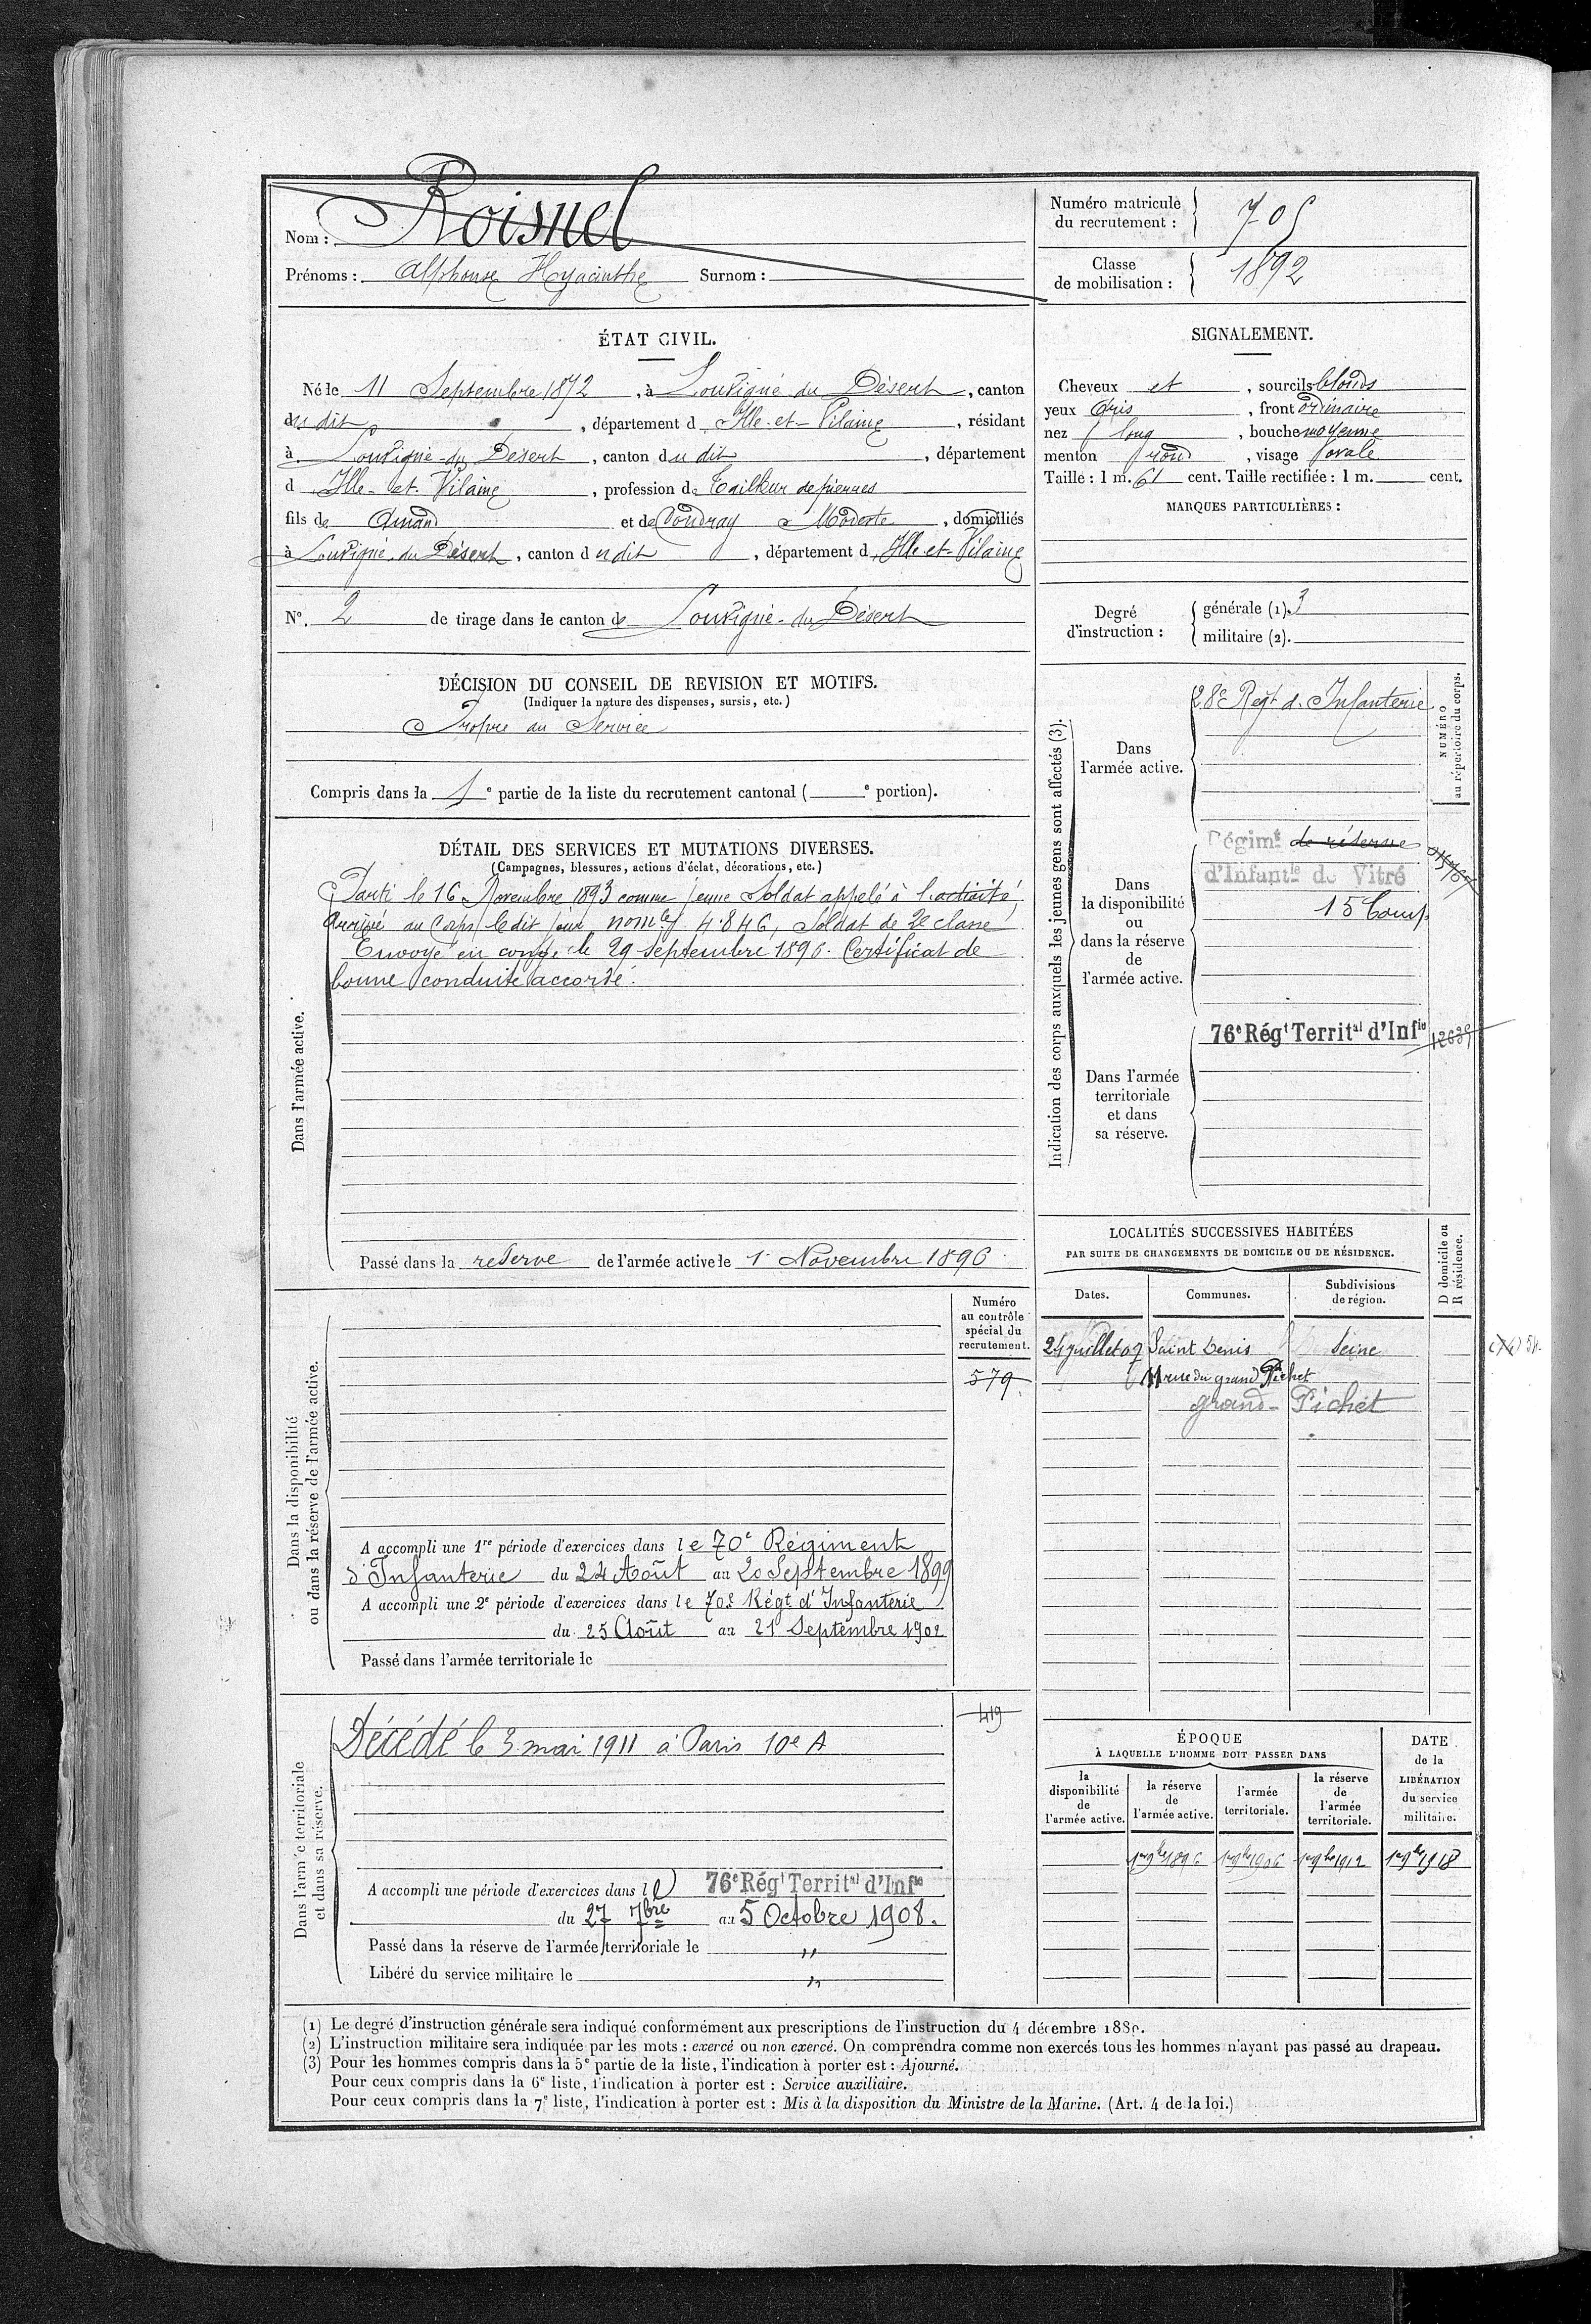 Nom : Roisnel
Prénoms : Alphonse Hyacinthe Surnom :
Numéro matricule
du recrutement : 705
Classe
de mobilisation : 1892
ÉTAT CIVIL.
Né le 11 Septembre 1872, à Louvigné du Désert, canton
du dit, département d Ille-et-Vilaine, résidant
à Louvigné-du Désert, canton du dit, département
d Ille-et-Vilaine, profession de Tailleur de pierres
fils de Amand et de Coudray Modeste, domiciliés
à Louvigné du Désert, canton du dit, département d Ille-et-Vilaine
N°. 2 de tirage dans le canton de Louvigné-du Désert
SIGNALEMENT.
Cheveux et, sourcils blonds
yeux Gris, front ordinaire
nez long, bouche moyenne
menton rond, visage ovale
Taille : 1 m. 61 cent. Taille rectifiée : 1 m. cent.
MARQUES PARTICULIÈRES :
Degré
d'instruction :
générale (1). 3
militaire (2).
DÉCISION DU CONSEIL DE REVISION ET MOTIFS.
(Indiquer la nature des dispenses, sursis, etc.)
Propre au Service
Compris dans la 1e partie de la liste du recrutement cantonal ( e portion).
DÉTAIL DES SERVICES ET MUTATIONS DIVERSES.
(Campagnes, blessures, actions d'éclat, décorations, etc.)
Dans l'armée active.
Parti le 16 Novembre 1893 comme jeune Soldat appelé à l'activité,
Arrivé au Corps ledit jour, 4.846, Soldat de 2e classe
Envoyé en congé le 29 septembre 1896. Certificat de
bonne conduite accordé.
Passé dans la réserve de l'armée active le 1 Novembre 1896
Indication des corps auxquels les jeunes gens sont affectés (3).
NUMÉRO
au répertoire du corps.
Dans
l'armée active.
28e Regt d'Infanterie
Dans
la disponibilité
ou
dans la réserve
de
l'armée active.
Régimt de réserve
d'Infantie de Vitré
15 Comp
Dans l'armée
territoriale
et dans
sa réserve.
76e Régt Territal d'Infie
LOCALITÉS SUCCESSIVES HABITÉES
PAR SUITE DE CHANGEMENTS DE DOMICILE OU DE RÉSIDENCE.
Dates.
Communes.
Subdivisions
de région.
D domicile ou
R résidence.
24 juillet 07 Saint Denis Seine
11 rue du grand Pichet
grand-Pichet
Dans la disponibilité
ou dans la réserve de l'armée active.
Numéro
au contrôle
spécial du
recrutement.
579
A accompli une 1re période d'exercices dans le 70e Régiment
d'Infanterie du 24 Août au 20 Septembre 1899
A accompli une 2e période d'exercices dans le 70e Régt d'Infanterie
du 25 Août au 21 Septembre 1902
Passé dans l'armée territoriale le
Dans l'armée territoriale
et dans sa réserve.
419
Décédé le 3 mai 1911 à Paris 10e A
A accompli une période d'exercices dans le 76e Régt Territal d'Infie
du 27 7bre au 5 Octobre 1908.
Passé dans la réserve de l'armée territoriale le "
Libéré du service militaire le "
ÉPOQUE
À LAQUELLE L'HOMME DOIT PASSER DANS
la
disponibilité
de
l'armée active.
la réserve
de
l'armée active.
l'armée
territoriale.
la réserve
de
l'armée
territoriale.
DATE
de la
LIBÉRATION
du service
militaire.
1er 9bre 1896 1er 9bre 1906 1er 9bre 1912 1er 9bre 1918
(1) Le degré d'instruction générale sera indiqué conformément aux prescriptions de l'instruction du 4 décembre 1889.
(2) L'instruction militaire sera indiquée par les mots : exercé ou non exercé. On comprendra comme non exercés tous les hommes n'ayant pas passé au drapeau.
(3) Pour les hommes compris dans la 5e partie de la liste, l'indication à porter est : Ajourné.
Pour ceux compris dans la 6e liste, l'indication à porter est : Service auxiliaire.
Pour ceux compris dans la 7e liste, l'indication à porter est : Mis à la disposition du Ministre de la Marine. (Art. 4 de la loi.)